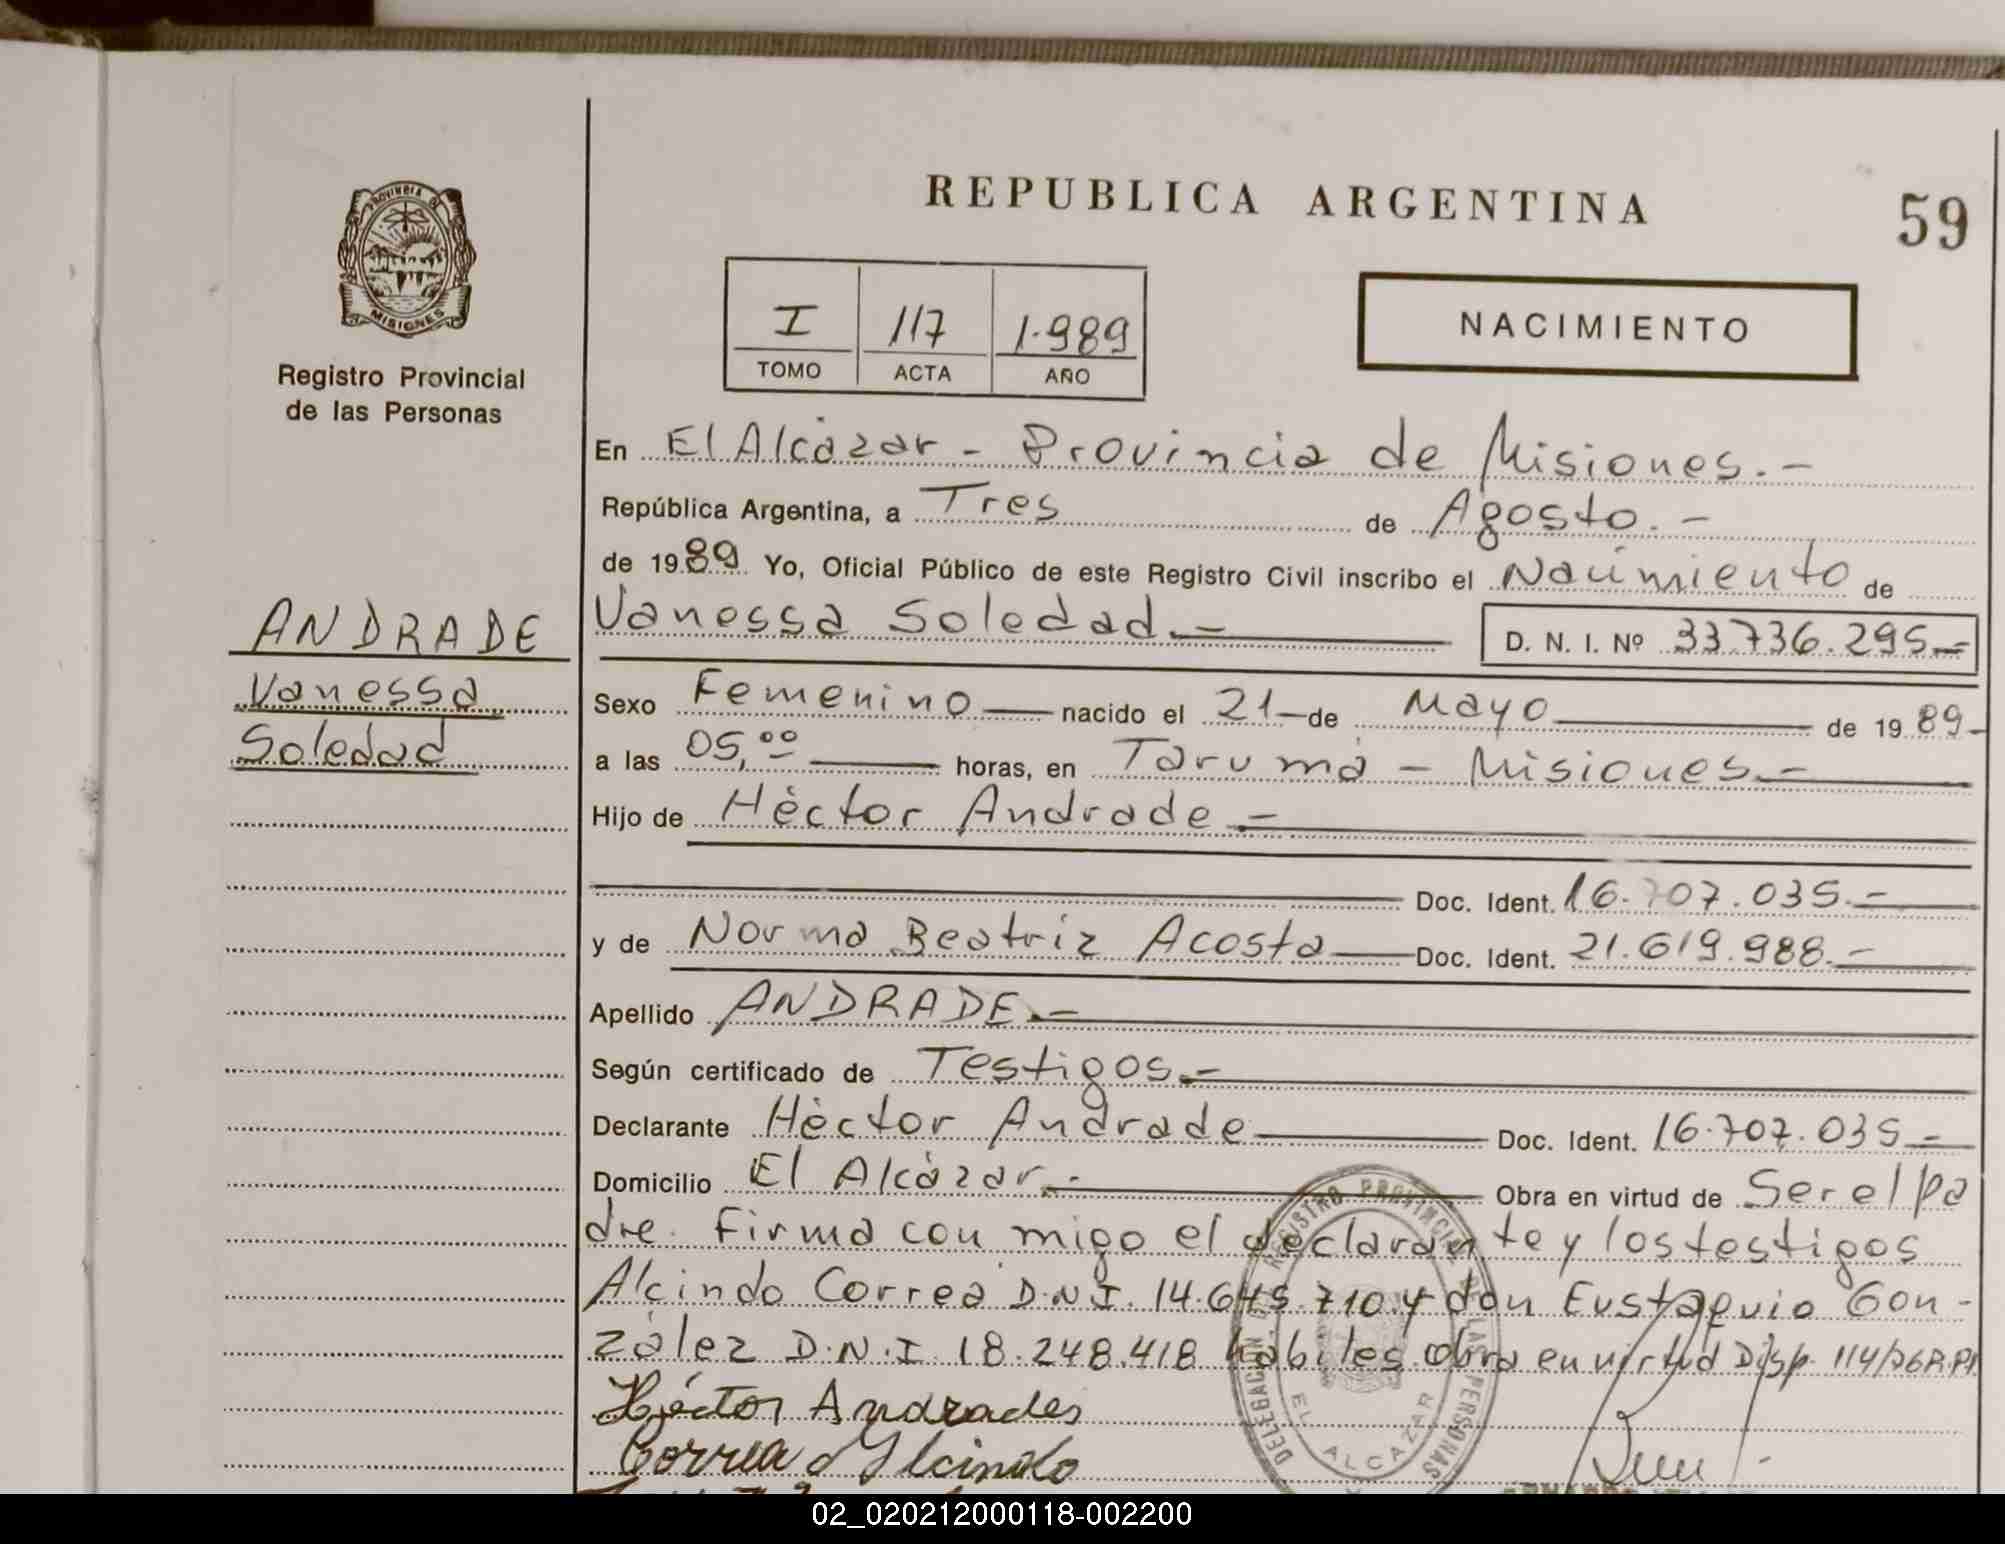 REPUBLICA ARGENTINA
59
PROVINCIA DE
MISIONES
Registro Provincial
de las Personas
I 117 1.989
TOMO ACTA AÑO
NACIMIENTO
En El Alcázar - Provincia de Misiones.-
República Argentina, a Tres de Agosto.-
de 1989 Yo, Oficial Público de este Registro Civil inscribo el Nacimiento de
Vanessa Soledad.- D. N. I. Nº 33.736.295.-
ANDRADE
Vanessa
Soledad
Sexo Femenino nacido el 21 de Mayo de 1989-
a las 05,00 horas, en Tarumá - Misiones.-
Hijo de Hèctor Andrade.-
Doc. Ident. 16.707.035.-
y de Norma Beatriz Acosta Doc. Ident. 21.619.988.-
Apellido ANDRADE.-
Según certificado de Testigos.-
Declarante Hèctor Andrade Doc. Ident. 16.707.035-
Domicilio El Alcàzar.- Obra en virtud de Ser el pa
dre. Firma con migo el declarante y los testigos
Alcindo Correa D.N.I. 14.645.710.y don Eustaquio Gon-
zàlez D.N.I. 18.248.418 habiles obra en virtud Disp. 114/76R.P.P.
Hèctor Andrades
Correa Alcindo
DELEGACION REGISTRO PROVINCIAL DE LAS PERSONAS
EL ALCAZAR
02_020212000118-002200